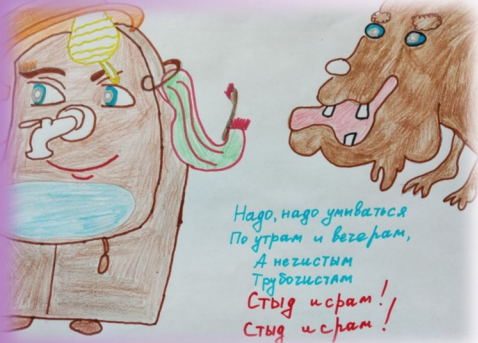 Надо, надо умиваться
По утрам и вечерам,
А нечистым
Трубочистам
Стыд и срам!
Стыд и срам!